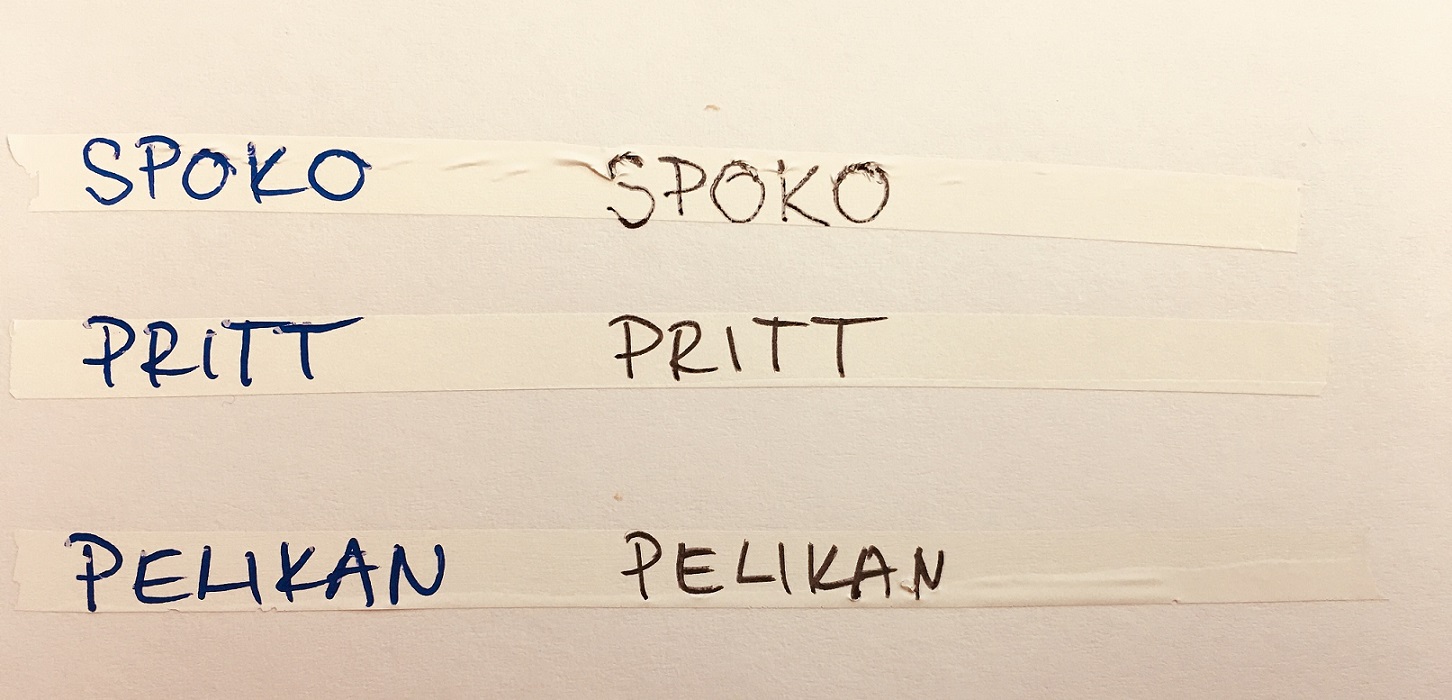 SPOKO SPOKO
PRITT PRITT
PELIKAN PELIKAN